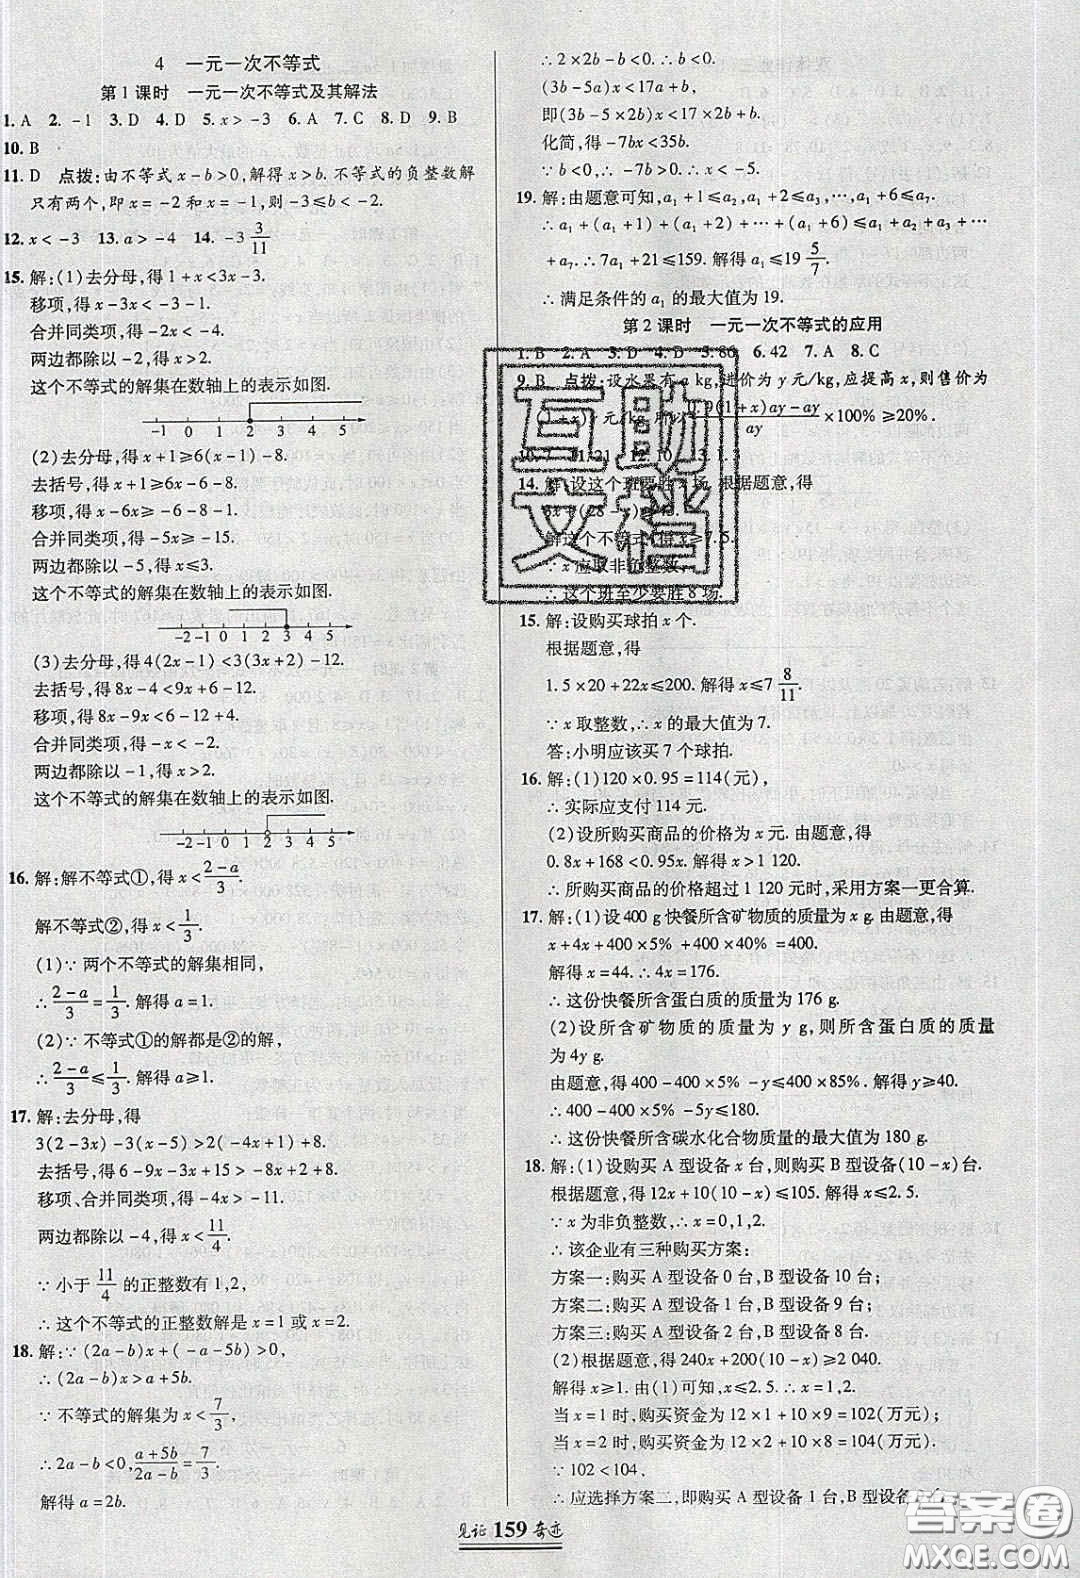 4 一元一次不等式
第1课时 一元一次不等式及其解法
1. A 2. -1 3. D 4. D 5. x>-3 6. A 7. C 8. D 9. B
10. B
11. D 点拨:由不等式x-b>0,解得x>b.不等式的负整数解
只有两个,即x=-2和x=-1,则-3≤b<-2.
12. x<-3 13. a>-4 14. -3 3/11
15. 解:(1)去分母,得1+x<3x-3.
移项,得x-3x<-3-1.
合并同类项,得-2x<-4.
两边都除以-2,得x>2.
这个不等式的解集在数轴上的表示如图.
-1 0 1 2 3 4 5
(2)去分母,得x+1≥6(x-1)-8.
去括号,得x+1≥6x-6-8.
移项,得x-6x≥-6-8-1.
合并同类项,得-5x≥-15.
两边都除以-5,得x≤3.
这个不等式的解集在数轴上的表示如图.
-2 -1 0 1 2 3 4 5
(3)去分母,得4(2x-1)<3(3x+2)-12.
去括号,得8x-4<9x+6-12.
移项,得8x-9x<6-12+4.
合并同类项,得-x<-2.
两边都除以-1,得x>2.
这个不等式的解集在数轴上的表示如图.
-2 -1 0 1 2 3 4 5
16. 解:解不等式①,得x<(2-a)/3.
解不等式②,得x<1/3.
(1)∵两个不等式的解集相同,
∴(2-a)/3=1/3.解得a=1.
(2)∵不等式①的解都是②的解,
∴(2-a)/3≤1/3.解得a≥1.
17. 解:去分母,得
3(2-3x)-3(x-5)>2(-4x+1)+8.
去括号,得6-9x-3x+15>-8x+2+8.
移项、合并同类项,得-4x>-11.
两边都除以-4,得x<11/4.
∵小于11/4的正整数有1,2,
∴这个不等式的正整数解是x=1或x=2.
18. 解:∵(2a-b)x+(-a-5b)>0,
∴(2a-b)x>a+5b.
∵不等式的解集为x<7/3,
∴2a-b<0,(a+5b)/(2a-b)=7/3.
解得a=2b.
∴2×2b-b<0,∴b<0.
(3b-5a)x<17a+b,
即(3b-5×2b)x<17×2b+b.
化简,得-7bx<35b.
∵b<0,∴-7b>0.∴x<-5.
19. 解:由题意可知,a₁+1≤a₂,a₁+2≤a₃,…,a₁+6≤a₇.
∴a₁+(a₁+1)+(a₁+2)+…+(a₁+6)≤a₁+a₂+a₃+…
+a₇.∴7a₁+21≤159.解得a₁≤19 5/7.
∴满足条件的a₁的最大值为19.
第2课时 一元一次不等式的应用
1. B 2. A 3. D 4. D 5. 86 6. 42 7. A 8. C
9. B 点拨:设水果有a kg,进价为y元/kg,应提高x,则售价为
(1+x)y元/kg. ×100%≥20%.
10. 7 11. 21 12. 10 13. 1.3
14. 解:设这个班要胜x场.根据题意,得
3x+(28-x)≥43.
解这个不等式,得x≥7.5.
∵x应取非负整数,
∴这个班至少要胜8场.
15. 解:设购买球拍x个.
根据题意,得
1.5×20+22x≤200.解得x≤7 8/11.
∵x取整数,∴x的最大值为7.
答:小明应该买7个球拍.
16. 解:(1)120×0.95=114(元),
∴实际应支付114元.
(2)设所购买商品的价格为x元.由题意,得
0.8x+168<0.95x.解得x>1 120.
∴所购买商品的价格超过1 120元时,采用方案一更合算.
17. 解:(1)设400 g快餐所含矿物质的质量为x g.由题意,得
x+4x+400×5%+400×40%=400.
解得x=44.∴4x=176.
∴这份快餐所含蛋白质的质量为176 g.
(2)设所含矿物质的质量为y g,则所含蛋白质的质量
为4y g.
由题意,得400-400×5%-y≤400×85%.解得y≥40.
∴400-400×5%-5y≤180.
∴这份快餐所含碳水化合物质量的最大值为180 g.
18. 解:(1)设购买A型设备x台,则购买B型设备(10-x)台.
根据题意,得12x+10(10-x)≤105.解得x≤2.5.
∵x为非负整数,∴x=0,1,2.
∴该企业有三种购买方案:
方案一:购买A型设备0台,B型设备10台;
方案二:购买A型设备1台,B型设备9台;
方案三:购买A型设备2台,B型设备8台.
(2)根据题意,得240x+200(10-x)≥2 040.
解得x≥1.由(1)可知,x≤2.5.∴x=1,2.
当x=1时,购买资金为12×1+10×9=102(万元);
当x=2时,购买资金为12×2+10×8=104(万元);
∵102<104.
∴应选择方案二,即购买A型设备1台,B型设备9台.
互助
文档
见证 159 奇迹
答案圈
MXQE.COM